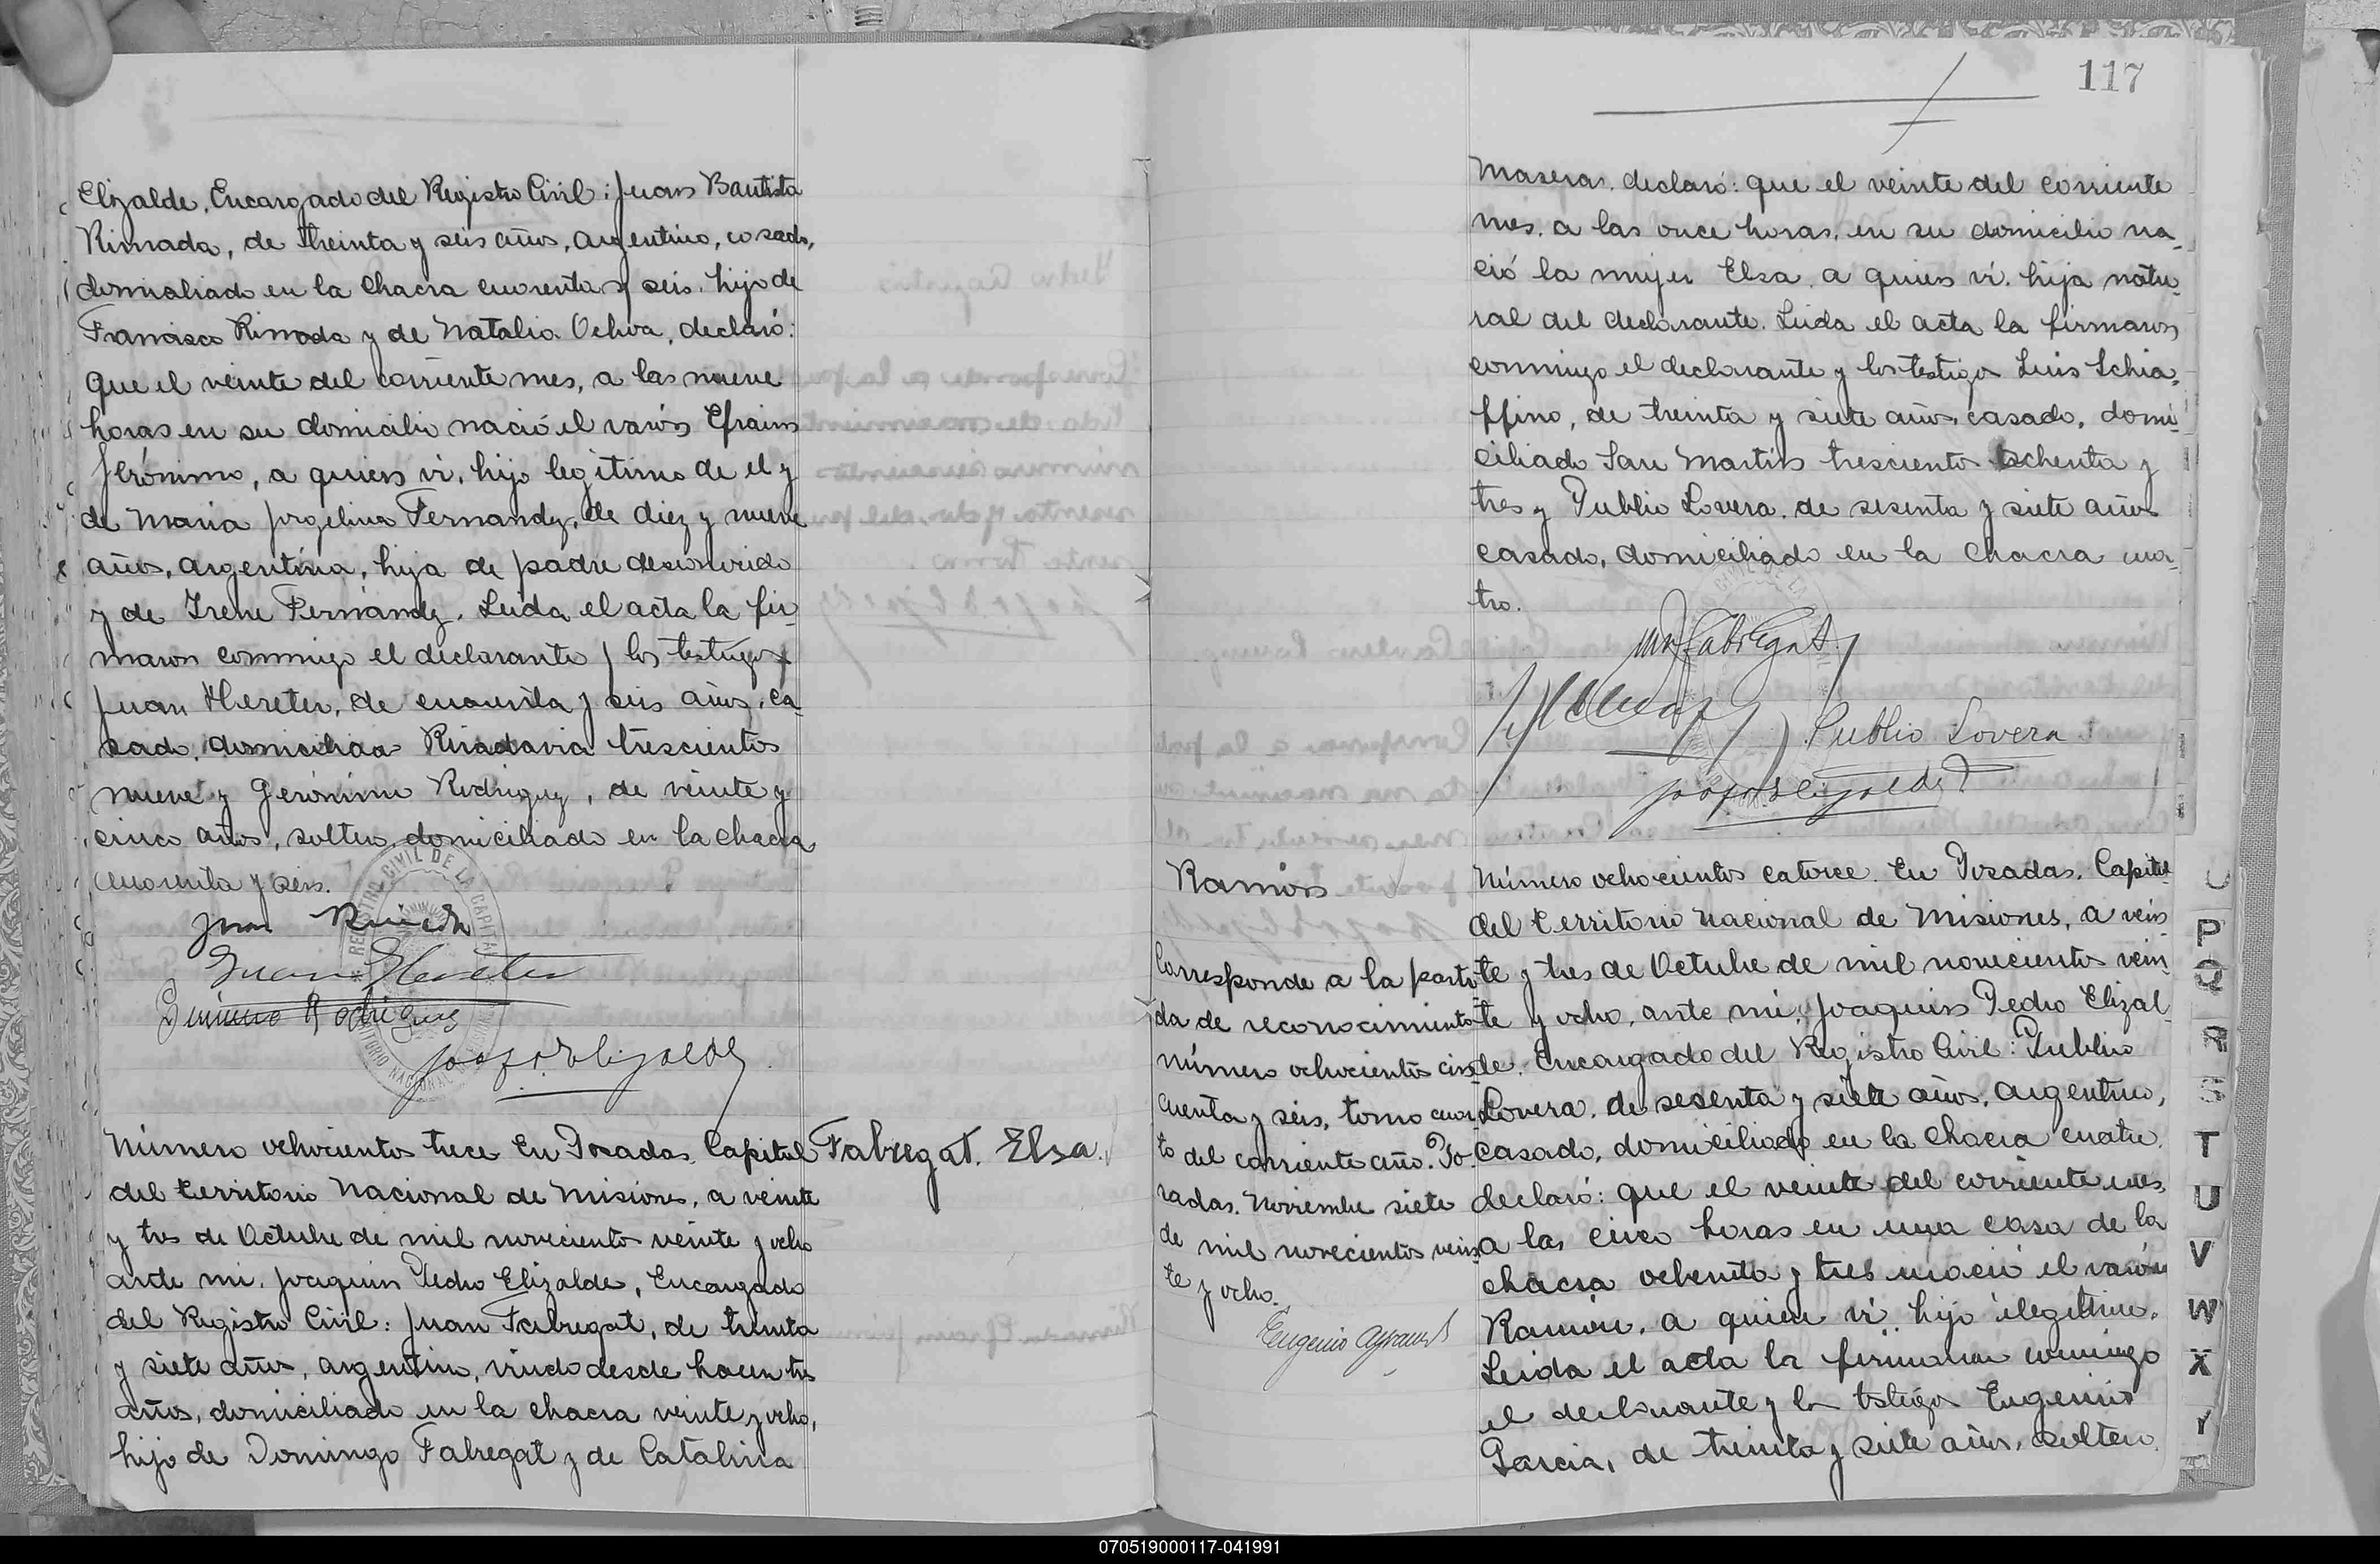 Elizalde, Encargado del Registro Civil: Juan Bautista
Rimada, de treinta y seis años, argentino, casado,
domiciliado en la chacra cuarenta y seis, hijo de
Francisco Rimada y de Natalia Ochoa, declaró:
que el veinte del corriente mes, a las nueve
horas en su domicilio nació el varón Efraim
Jerónimo, a quien vi, hijo legítimo de el y
de Maria Jorgelina Fernandez, de diez y nueve
años, argentina, hija de padre desconocido
y de Irene Fernandez. Leida el acta la fir-
maron conmigo el declarante y los testigos
Juan Hereter, de cuarenta y seis años, ca-
sado, domiciliado Rivadavia trescientos
nueve y Gerónimo Rodriguez, de veinte y
cinco años, soltero, domiciliado en la chacra
cuarenta y seis.
Juan Rimada
Juan Hereter
Gerónimo Rodriguez
REGISTRO CIVIL DE LA CAPITAL
Número ochocientos trece En Posadas, Capital
del territorio Nacional de Misiones, a veinte
y tres de Octubre de mil novecientos veinte y ocho
ante mi, Joaquin Pedro Elizalde, Encargado
del Registro Civil: Juan Fabregat, de treinta
y siete años, argentino, viudo desde hacen tres
años, domiciliado en la chacra veinte y ocho,
hijo de Domingo Fabregat y de Catalina
Fabregat. Elsa.
117
Masera, declaró: que el veinte del corriente
mes, a las once horas, en su domicilio na-
ció la mujer Elsa, a quien vi, hija natu-
ral del declarante. Leida el acta la firmaron
conmigo el declarante y los testigos Luis Schia-
ffino, de treinta y siete años, casado, domi-
ciliado San Martin trescientos ochenta y
tres y Publio Lovera, de sesenta y siete años
casado, domiciliado en la chacra cua-
tro.
Fabregat
Publio Lovera
Ramón
Corresponde a la parti-
da de reconocimiento
número ochocientos cin-
cuenta y seis, tomo cuar-
to del corriente año. Po-
sadas, Noviembre siete
de mil novecientos vein-
te y ocho.
Eugenio
Número ochocientos catorce. En Posadas, Capital
del territorio Nacional de Misiones, a vein-
te y tres de Octubre de mil novecientos vein-
te y ocho, ante mi, Joaquin Pedro Elizal-
de, Encargado del Registro Civil: Publio
Lovera, de sesenta y siete años, argentino,
casado, domiciliado en la chacra cuatro,
declaró: que el veinte del corriente mes,
a las cinco horas en una casa de la
chacra ochenta y tres nació el varón
Ramón, a quien vi, hijo ilegítimo.
Leida el acta la firmaron conmigo
el declarante y los testigos Eugenio
Garcia, de treinta y siete años, soltero,
P
Q
R
S
T
U
V
W
X
Y
070519000117-041991